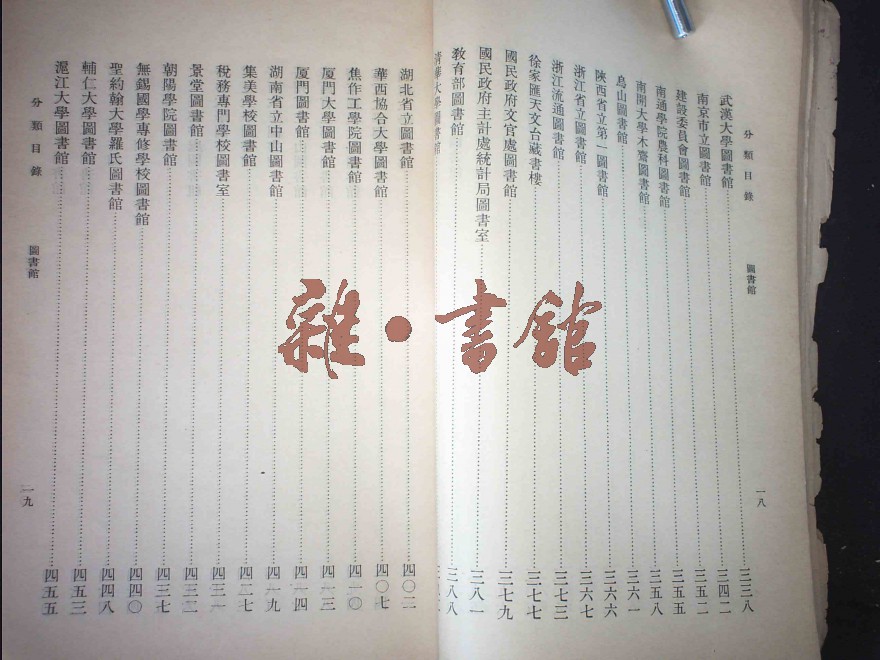 分類目錄 圖書館 一八
武漢大學圖書館 三三八
南京市立圖書館 三四二
建設委員會圖書館 三五二
南通學院農科圖書館 三五五
南開大學木齋圖書館 三五八
烏山圖書館 三六一
陝西省立第一圖書館 三六六
浙江省立圖書館 三六七
浙江流通圖書館 三七三
徐家匯天文台藏書樓 三七七
國民政府文官處圖書館 三七九
國民政府主計處統計局圖書室 三八一
教育部圖書館 三八八
清華大學圖書館
湖北省立圖書館 四〇二
華西協合大學圖書館 四〇七
焦作工學院圖書館 四一〇
厦門大學圖書館 四一三
厦門圖書館 四一四
湖南省立中山圖書館 四一九
集美學校圖書館 四二七
稅務專門學校圖書室 四三一
景堂圖書館 四三二
朝陽學院圖書館 四三七
無錫國學專修學校圖書館 四四〇
聖約翰大學羅氏圖書館 四四八
輔仁大學圖書館 四五三
滬江大學圖書館 四五五
分類目錄 圖書館 一九
雜·書館